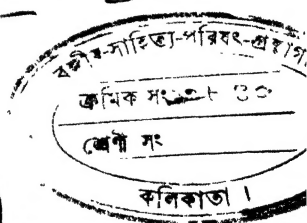 বঙ্গীয়-সাহিত্য-পরিষৎ-গ্রন্থা
ক্রমিক সং
শ্রেণী সং
কলিকাতা ।